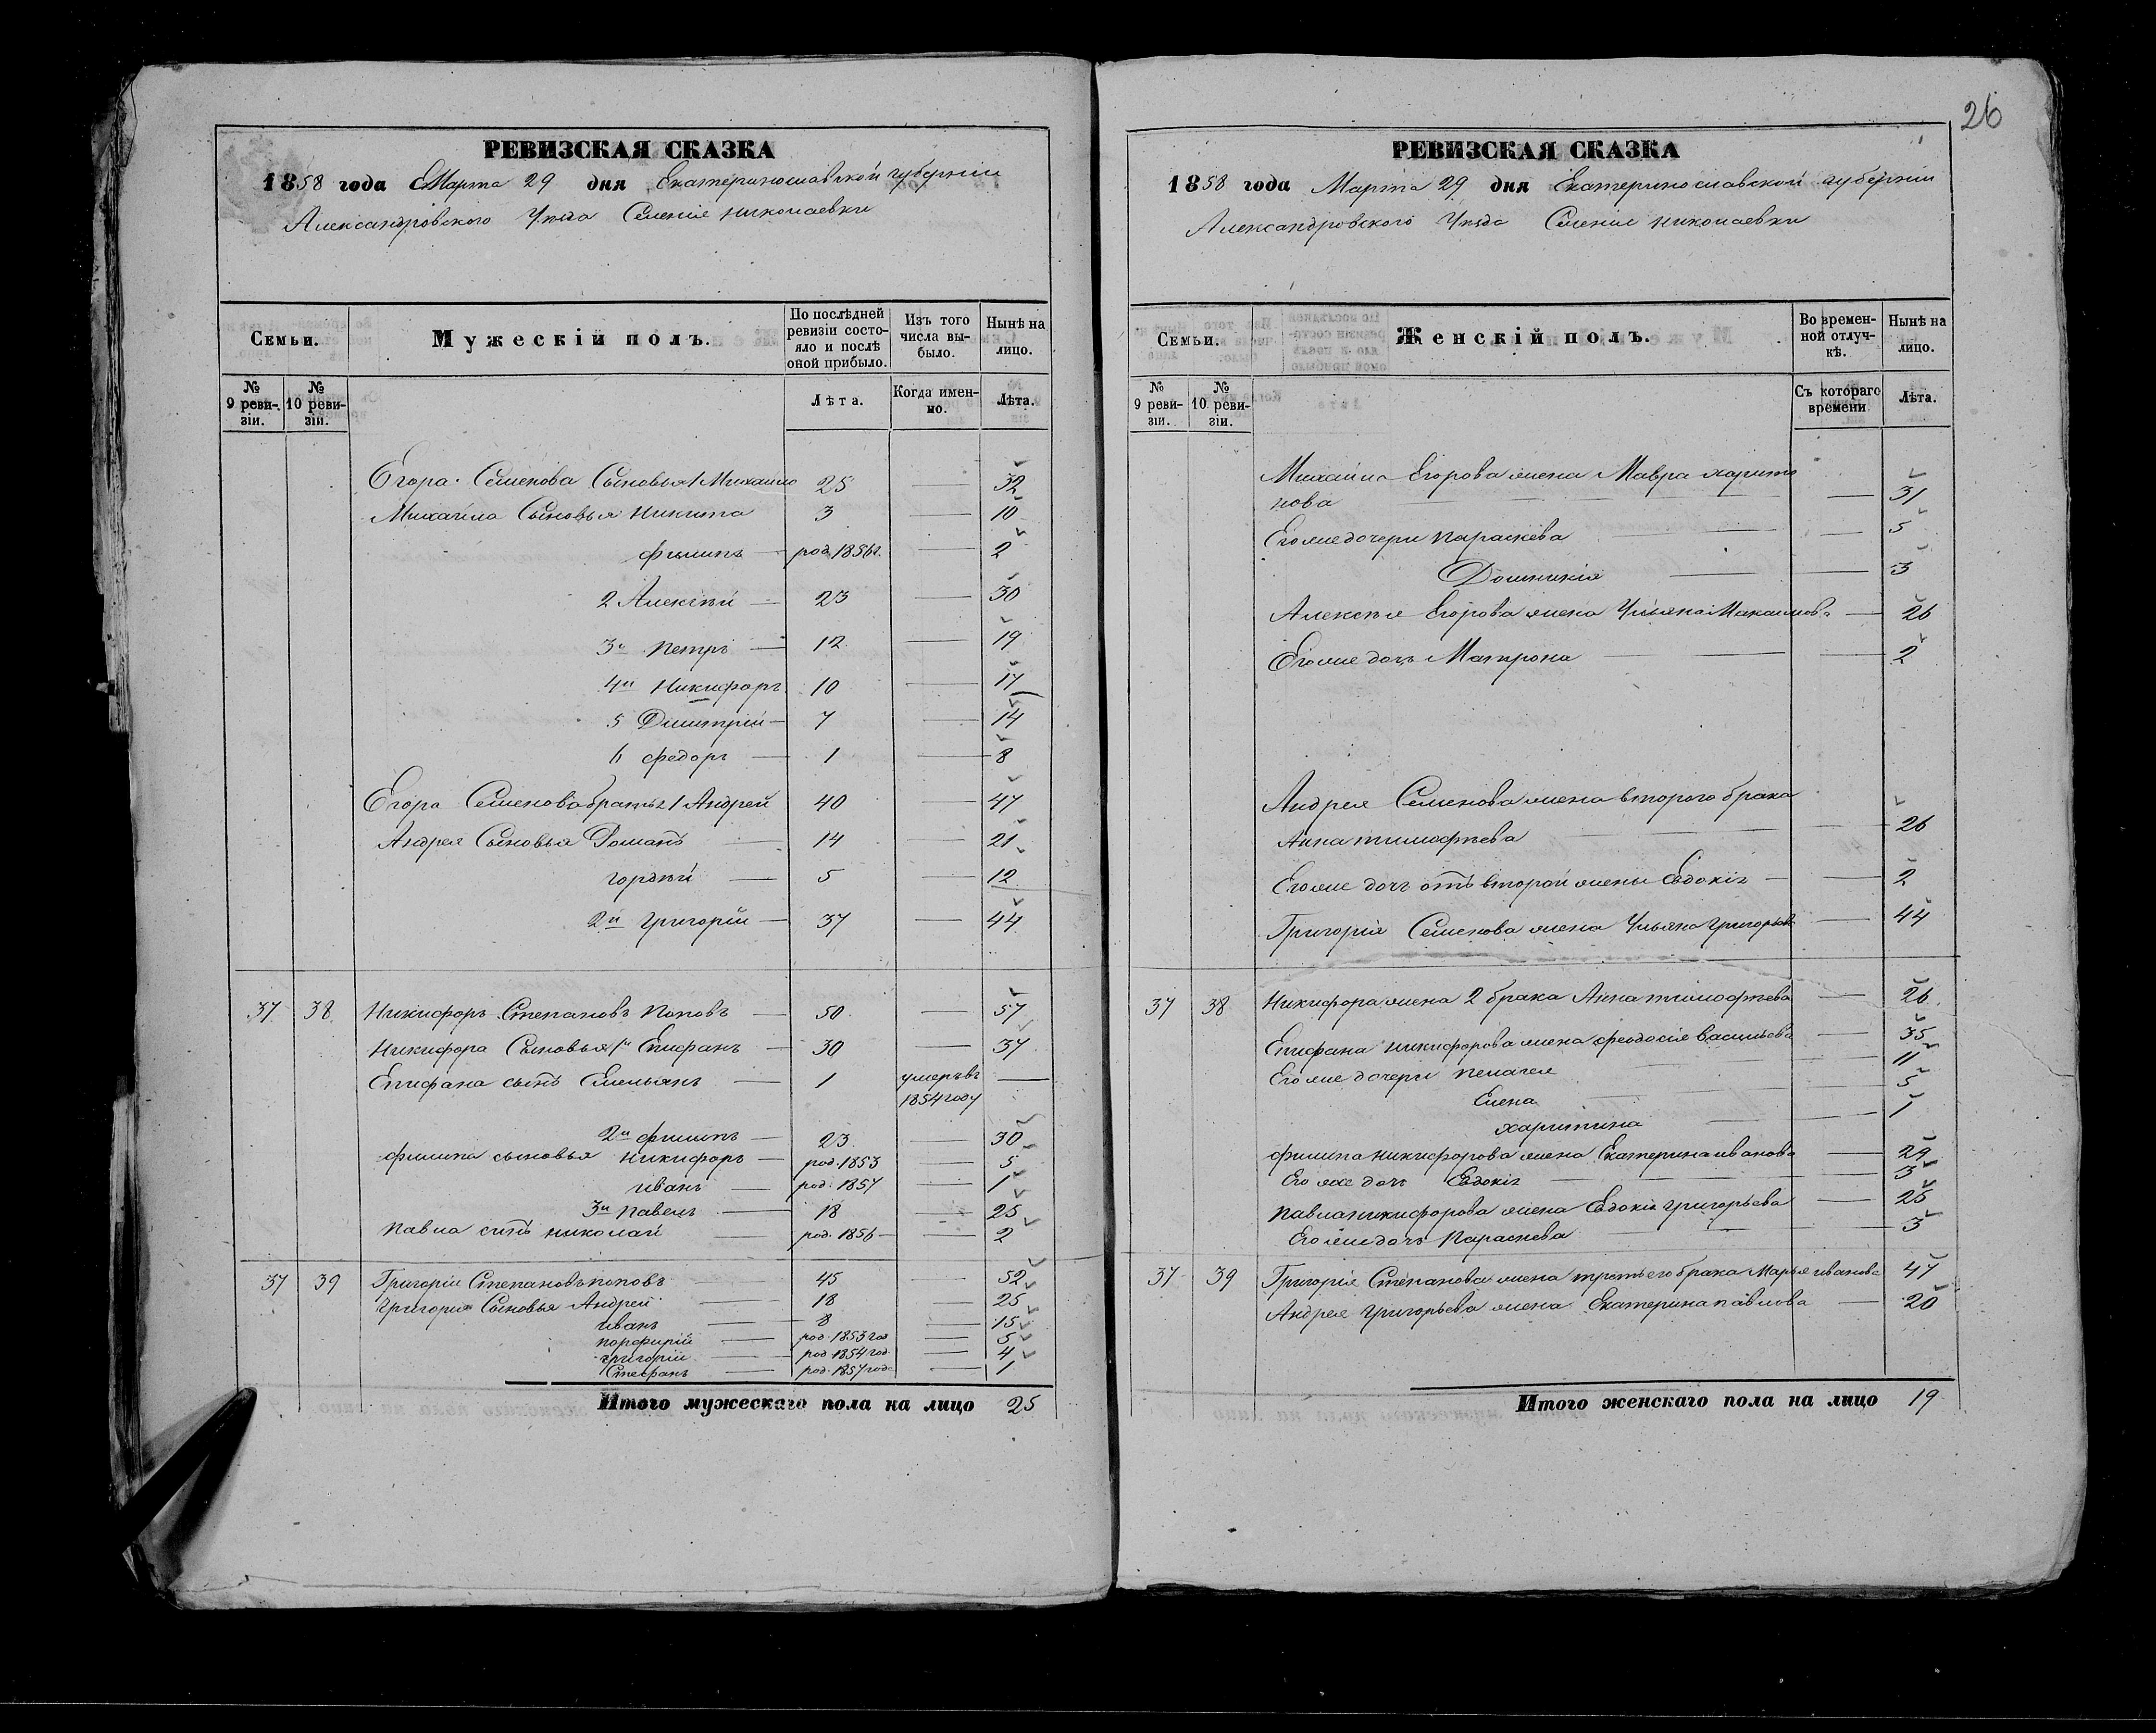 РЕВИЗСКАЯ СКАЗКА
1858 года Марта 29 дня Екатеринославской губернии
Александровского Уезда Селенiе николаевки
Семьи.
Мужескій полъ.
По послѣдней ревизіи состояло и послѣ оной прибыло.
Изъ того числа выбыло.
Нынѣ на лицо.
№ 9 ревизіи.
№ 10 ревизіи.
Лѣта.
Когда именно.
Лѣта.
Егора Семенова Сыновья 1 Михайло 25 — 32
Михайла Сыновья Никита 3 — 10
филипъ — род. 1856г. — 2
2 Алексѣй — 23 — 30
3й Петръ — 12 — 19
4й Никифоръ 10 — 17
5 Дмитрій — 7 — 14
6 федоръ — 1 — 8
Егора Семенова братья 1 Андрей 40 — 47
Андрея Сыновья Романъ — 14 — 21
гордѣй — 5 — 12
2й григорій — 37 — 44
37 38 Никифоръ Степановъ Поповъ — 50 — 57
Никифора Сыновья 1й Епифанъ — 30 — 37
Епифана сынъ Емельянъ — 1 умеръ въ —
1854 году
2й филипъ — 23 — 30
филипа сыновья никифоръ — род. 1853 — 5
иванъ — род. 1857 — 1
3й павелъ — 18 — 25
павла сынъ николай — род. 1856 — 2
37 39 Григорій Степановъ поповъ — 45 — 52
григория Сыновья Андрей — 18 — 25
иванъ — 8 — 15
порфирій — род. 1853 год — 5
григорій — род. 1854 год. — 4
Стефанъ — род. 1857 год — 1
Итого мужескаго пола на лицо 25
26
РЕВИЗСКАЯ СКАЗКА
1858 года Марта 29 дня Екатеринославской губерніи
Александровского Уезда Селенiе николаевки
Семьи.
Женскій полъ.
Во временной отлучкѣ.
Нынѣ на лицо.
№ 9 ревизіи.
№ 10 ревизіи.
Съ котораго времени
Лѣта.
Михайла Егорова жена Мавра харито
нова — 31
Его же дочери параскева — 5
Домникія — 3
Алексѣя Егорова жена Ульяна Максимова — 26
Его же дочь Матрона — 2
Андрея Семенова жена второго брака
Анна тимофѣева — 26
Его же дочь отъ второй жены Евдокія — 2
Григорія Семенова жена Ульяна григорьева — 44
37 38 Никифора жена 2 брака Анна тимофѣева — 26
Епифана никифорова жена феодосія васильева — 35
Его же дочери пелагея — 11
Елена — 5
харитина — 1
филипа никифорова жена Екатерина иванова — 29
Его же дочь Евдокія — 3
павла никифорова жена Евдокія григорьева — 25
Его же дочь Параскева — 3
37 39 Григорія Степанова жена третьего брака Марья иванова 47
Андрея григорьева жена Екатерина павлова — 20
Итого женскаго пола на лицо 19